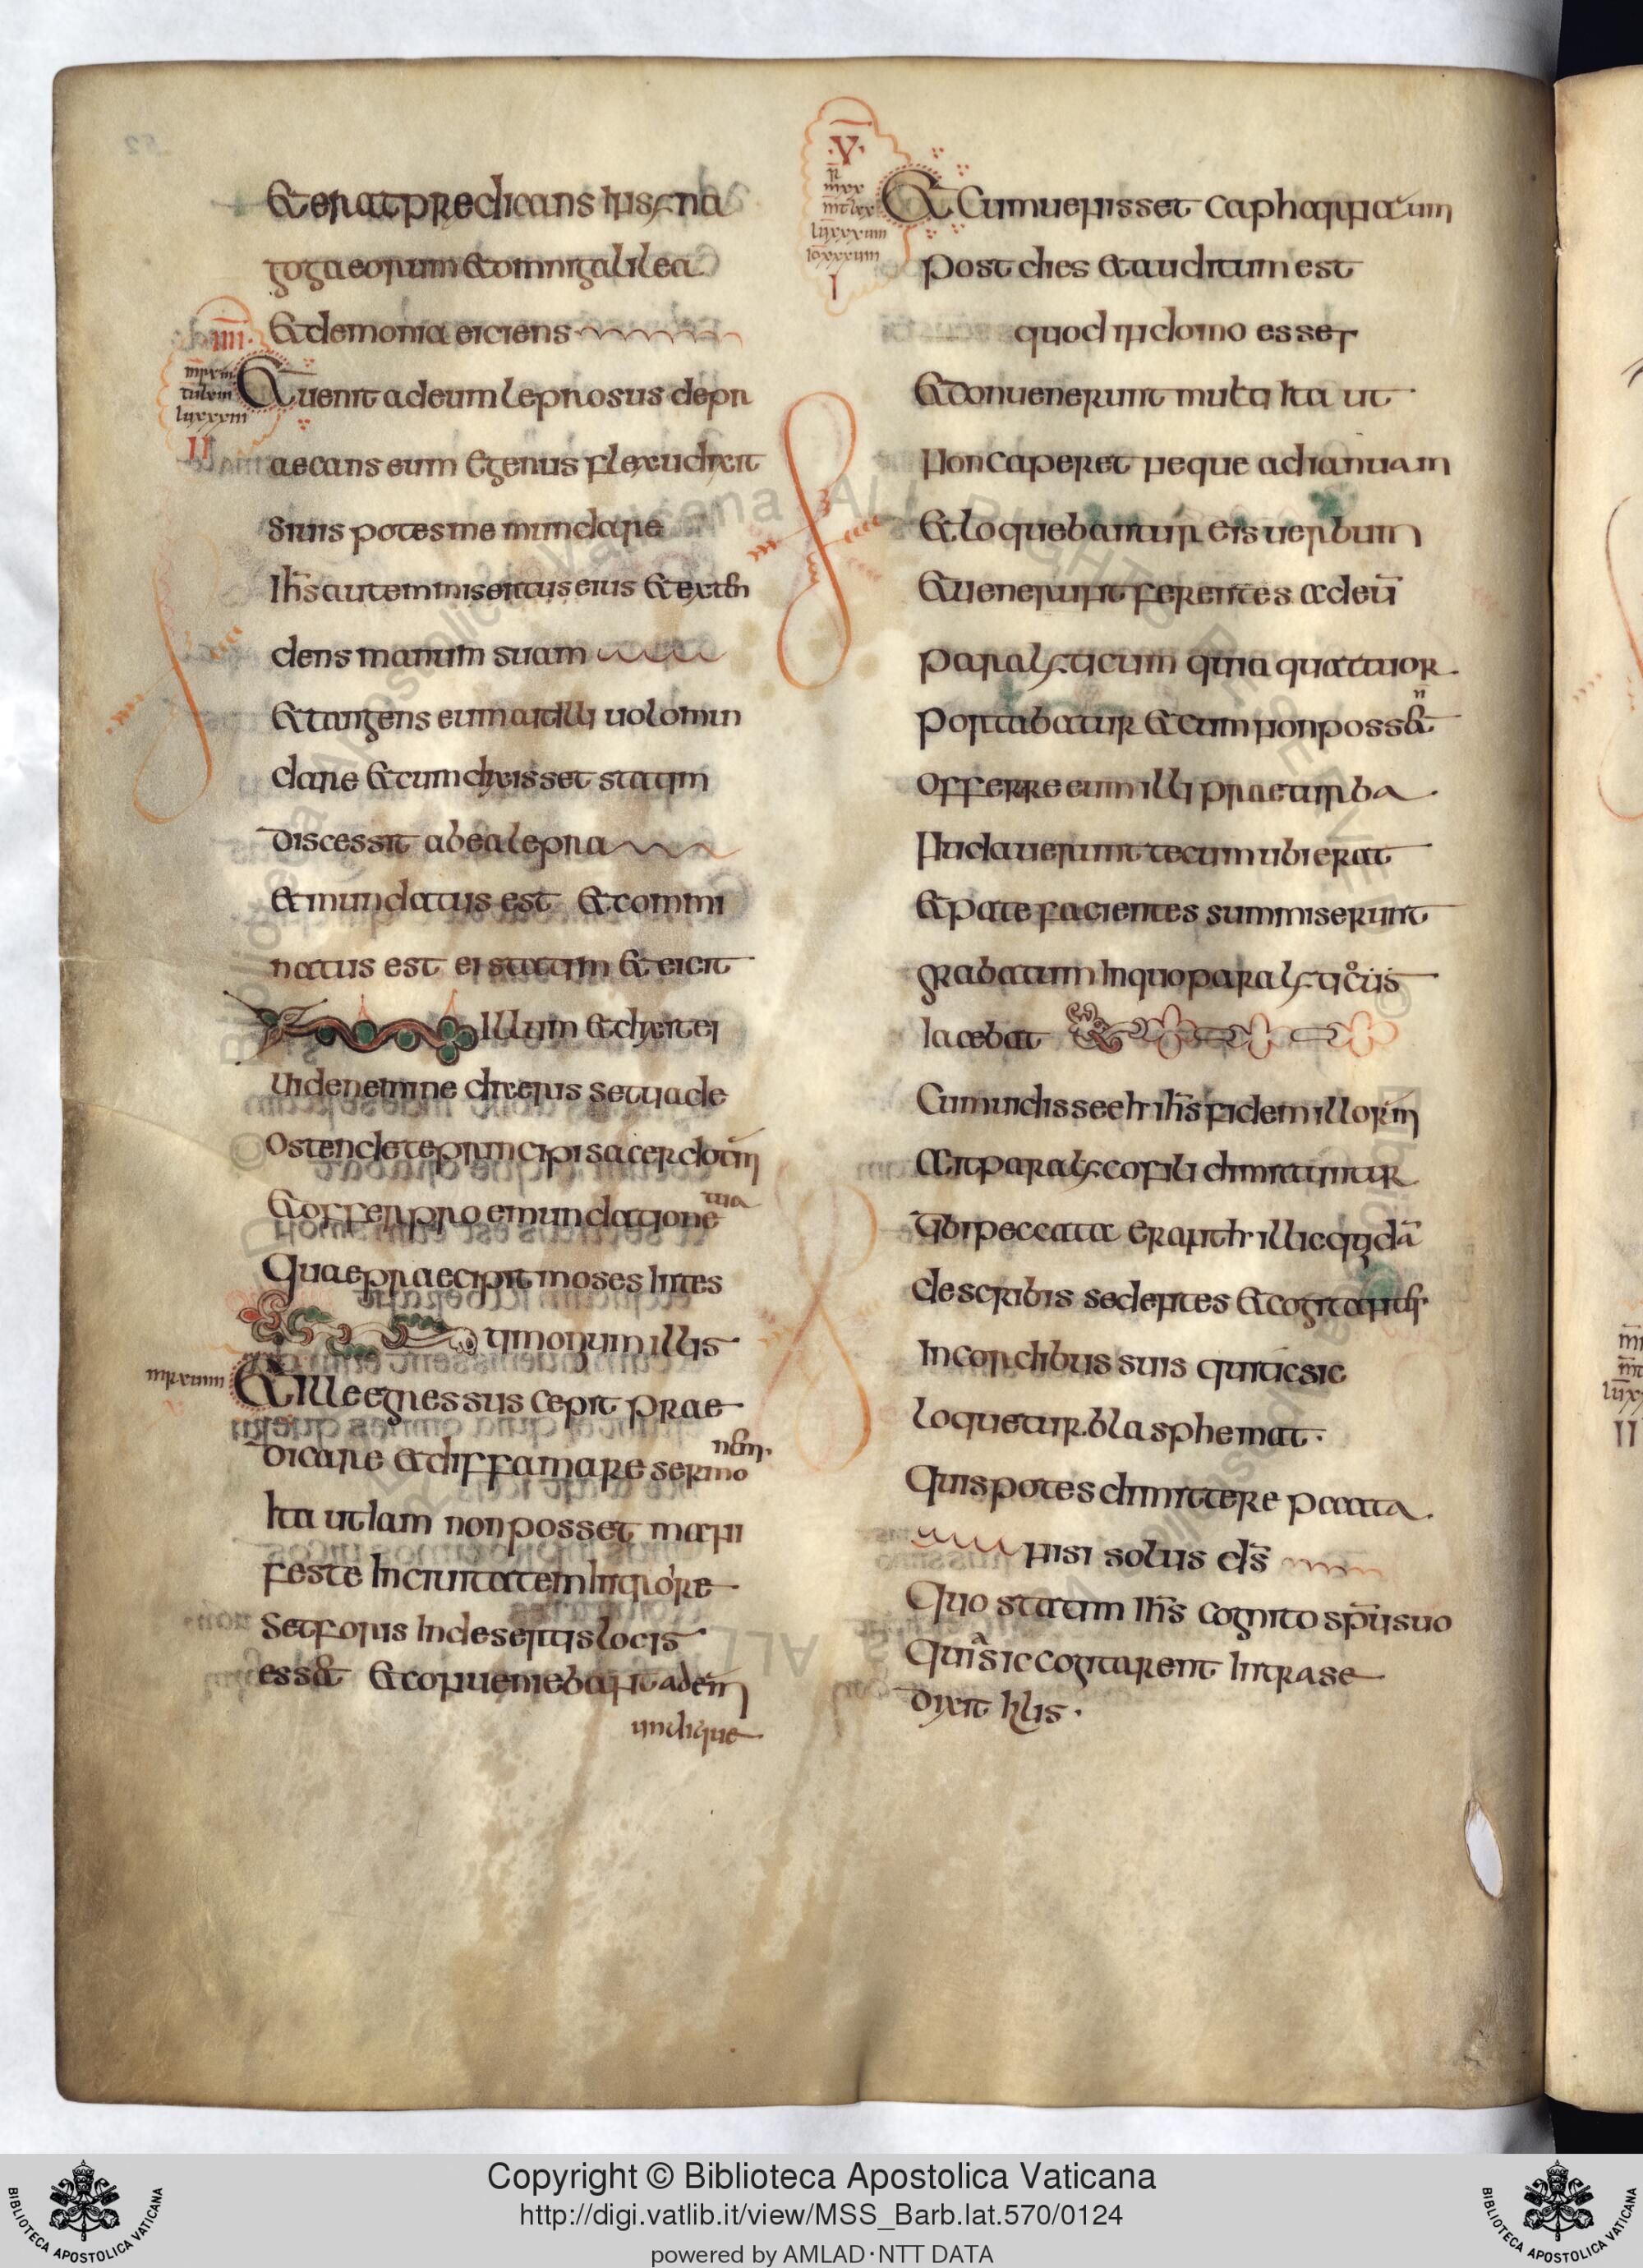 Et erat predicans in sina
goga eorum et omni galilea
et demonia eiciens
·IIII·
Et uenit ad eum leprosus depr
II
aecans eum et genus flexu dixit
si uis potes me mundare
ihs autem misertus eius et exten
dens manum suam
et tangens eum ait illi uolo mun
dare et cum dixisset statim
discessit ab ea lepra
et mundatus est et commi
natus est ei statim et eicit
illum et dixit ei
uide nemine dixeris set uade
ostende te principi sacerdotum
et offer pro emundatione tua
quae praecipit moses in tes
timonium illis
Et ille egressus cepit prae
dicare et diffamare sermonem
ita ut iam non posset mani
feste in ciuitatem introire
set foris in desertis locis
esset et conueniebant ad eum
undique
·V·
I
Et cum uenisset capharnaum
post dies et auditum est
quod in domo esset
et conuenerunt multi ita ut
non caperet neque ad ianuam
et loquebantur eis uerbum
et uenerunt ferentes ad eū
paralyticum qui a quattuor
portabatur et cum non possent
offerre eum illi prae turba
nudauerunt tectum ubi erat
et patefacientes summiserunt
grabatum in quo paralyticus
iacebat
Cum uidisset ihs fidem illorum
ait paralyco fili dimittuntur
tibi peccata erant illic quidā
de scribis sedentes et cogitantes
in cordibus suis quit ic sic
loquetur blasphemat·
quis potes dimittere pccata
nisi solus ds
Quo statim ihs cognito spu suo
quia sic cogitarent intra se
dixit illis·
Copyright © Biblioteca Apostolica Vaticana
http://digi.vatlib.it/view/MSS_Barb.lat.570/0124
powered by AMLAD·NTT DATA
BIBLIOTECA APOSTOLICA VATICANA
BIBLIOTECA APOSTOLICA VATICANA